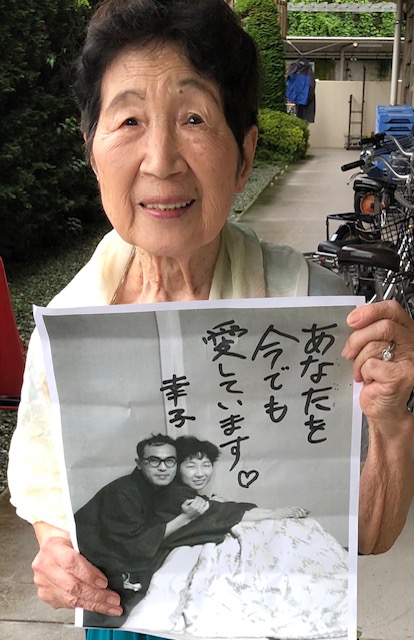 あなたを
今でも
愛しています♡
幸子